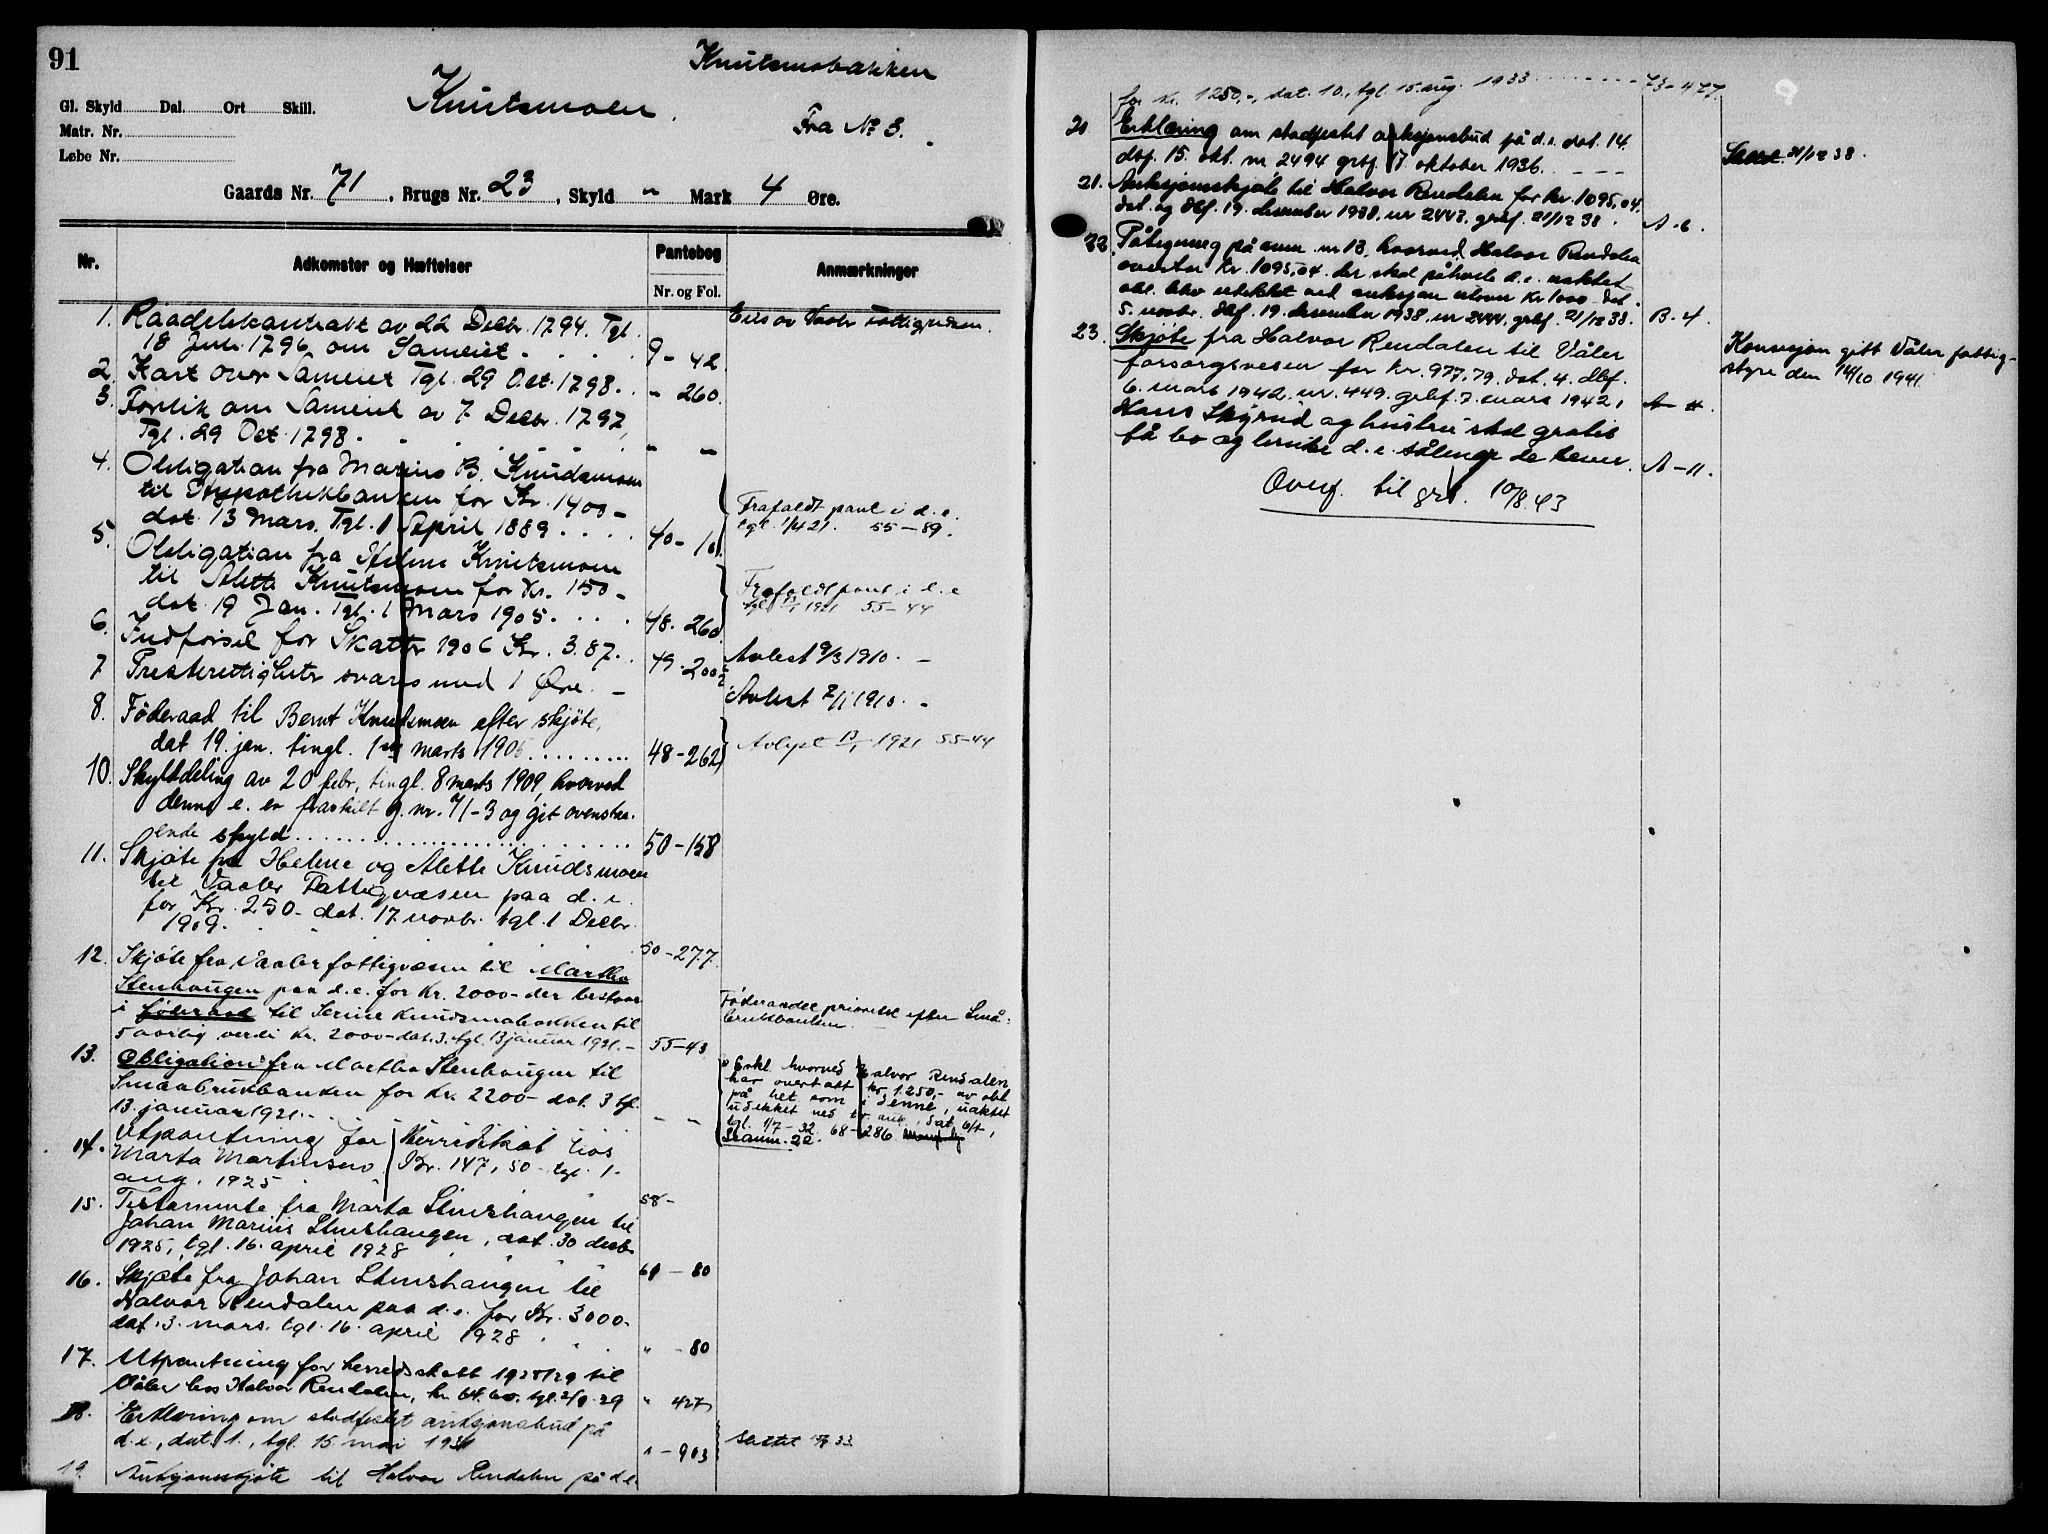 91
Knutsmobakken
Knutsmoen.
Fra No 3.
Gl. Skyld Dal. Ort Skill.
Matr. Nr.
Løbe Nr.
Gaards Nr. 71, Brugs Nr. 23, Skyld " Mark 4 Øre.
Nr. Adkomster og Hæftelser Pantebog Anmærkninger
Nr. og Fol.
1. Raadelskontrakt av 22 Decbr. 1794. Tgl. Eies av Vaaler Fattigvæsen.
18 Juni 1796 om Sameiet. 9 - 42
2. Kart over Sameiet Tgl. 29 Oct. 1798. " 260.
3. Forlik om Sameiet av 7. Decbr. 1797,
Tgl. 29 Oct. 1798. " "
4. Obligation fra Marius B. Knudsmoen
til Hypothekbanken for Kr. 1400- Frafaldt pant i d.e.
dat. 13 Mars. Tgl. 1 April 1889. 40- 101. tgl. 1/4 21. 55-89.
5. Obligation fra Helene Knutsmoen
til Alette Knutsmoen for Kr. 150- Frafaldt pant i d.e
dat. 19 Jan. Tgl. 1 Mars 1905. 48. 260. tgl. 13/1 1921 55-44
6. Indførsel for Skatter 1906 Kr. 3.87. 49. 200 Avlest 9/3 1910. -
7 Presterettigheter svares med 1 Øre. - Avlest 7/1 1910. -
8. Føderaad til Bernt Knudsmoen efter skjøte,
dat 19. jan. tingl. 1ste marts 1905 48-262 Avlyst 13/1 1921 55-44
10. Skylddeling av 20 febr, tingl. 8 marts 1909, hvorved
denne e. er fraskilt g. nr. 71-3 og git ovenstaa-
ende skyld 50-158
11. Skjøte fra Helene og Alette Knudsmoen
til Vaaler Fattigvæsen paa d.e.
for Kr. 250- dat. 17. novbr. tgl. 1 Decbr.
1909. 50-277.
12. Skjøte fra Vaaler fattigvæsen til Martha
Stenhaugen paa d.e. for Kr. 2000- der bestaar
i føderaad til Serine Knudsmobakken til Føderaadet prioritet efter Små-
5 aarlig verdi Kr. 2000- dat. 3. tgl. 13 januar 1921.- 55-43 brukbanken.
13. Obligation fra Martha Stenhaugen til Erkl. hvorved Halvor Rendalen
Smaabrukbanken for Kr. 2200- dat. 3 tgl. har overtatt kr. 1250,- av obl.
13. januar 1921.- - - på det som i denne, uaktet
udekket ved tv. auk., dat. 6/4,
tgl. 1/7-32. 68-286.
Se anm. 22.
14. Utpantning for Herredskat hos
Marta Martinsen Kr. 147,50 - tgl. 1.
aug. 1925 58-
15. Testamente fra Marta Stenshaugen til
Johan Marius Stenshaugen, dat. 30 decbr
1925, tgl. 16. april 1928 61 - 80
16. Skjøte fra Johan Stenshaugen til
Halvor Rendalen paa d.e. for Kr. 3000-
dat. 3. mars. tgl. 16. april 1928 " - 80
17. Utpantning for herredsskatt 1928/29 til
Våler hos Halvor Rendalen, kr. 64.60. tgl. 2/9-29 " 427
18. Erklæring om stadfestet auksjonsbud på
d.e., dat. 1., tgl. 15 mai 1931 " - 903 slettet 15/8 33.
19. Auksjonsskjøte til Halvor Rendalen på d.e.
for kr. 1250,-, dat. 10., tgl. 15. aug. 1933 73-477.
20 Erklæring om stadfestet auksjonsbud på d.e. dat. 14.
dbf. 15. okt. nr 2494 grbf. 17. oktober 1936. Slettet 21/12 38.
21. Auksjonsskjøte til Halvor Rendalen for kr. 1095.04.
dat. og dbf. 19. desember 1938. nr 2443. grbf. 21/12 38. A-6.
22. Påtegning på anm. nr 13, hvorved Halvor Rendalen
overtar kr. 1095,04. der skal påhvile d.e. uaktet
obl. blev udekket ved auksjon utover kr 1000. dat.
5. novbr. dbf. 19. desember 1938. nr 2444. grbf. 21/12 38. B-4.
23. Skjøte fra Halvor Rendalen til Våler Konsesjon gitt Våler fattig-
forsorgsvesen for kr. 977.79. dat. 4. dbf. styre den 14/10 1941.
6. mars 1942. nr. 449. grbf. 7. mars 1942, A-11.
Hans Skyrud og hustru skal gratis
få bo og bruke d.e. sålenge de lever. A-11.
Overf. til grb. 10/8.43